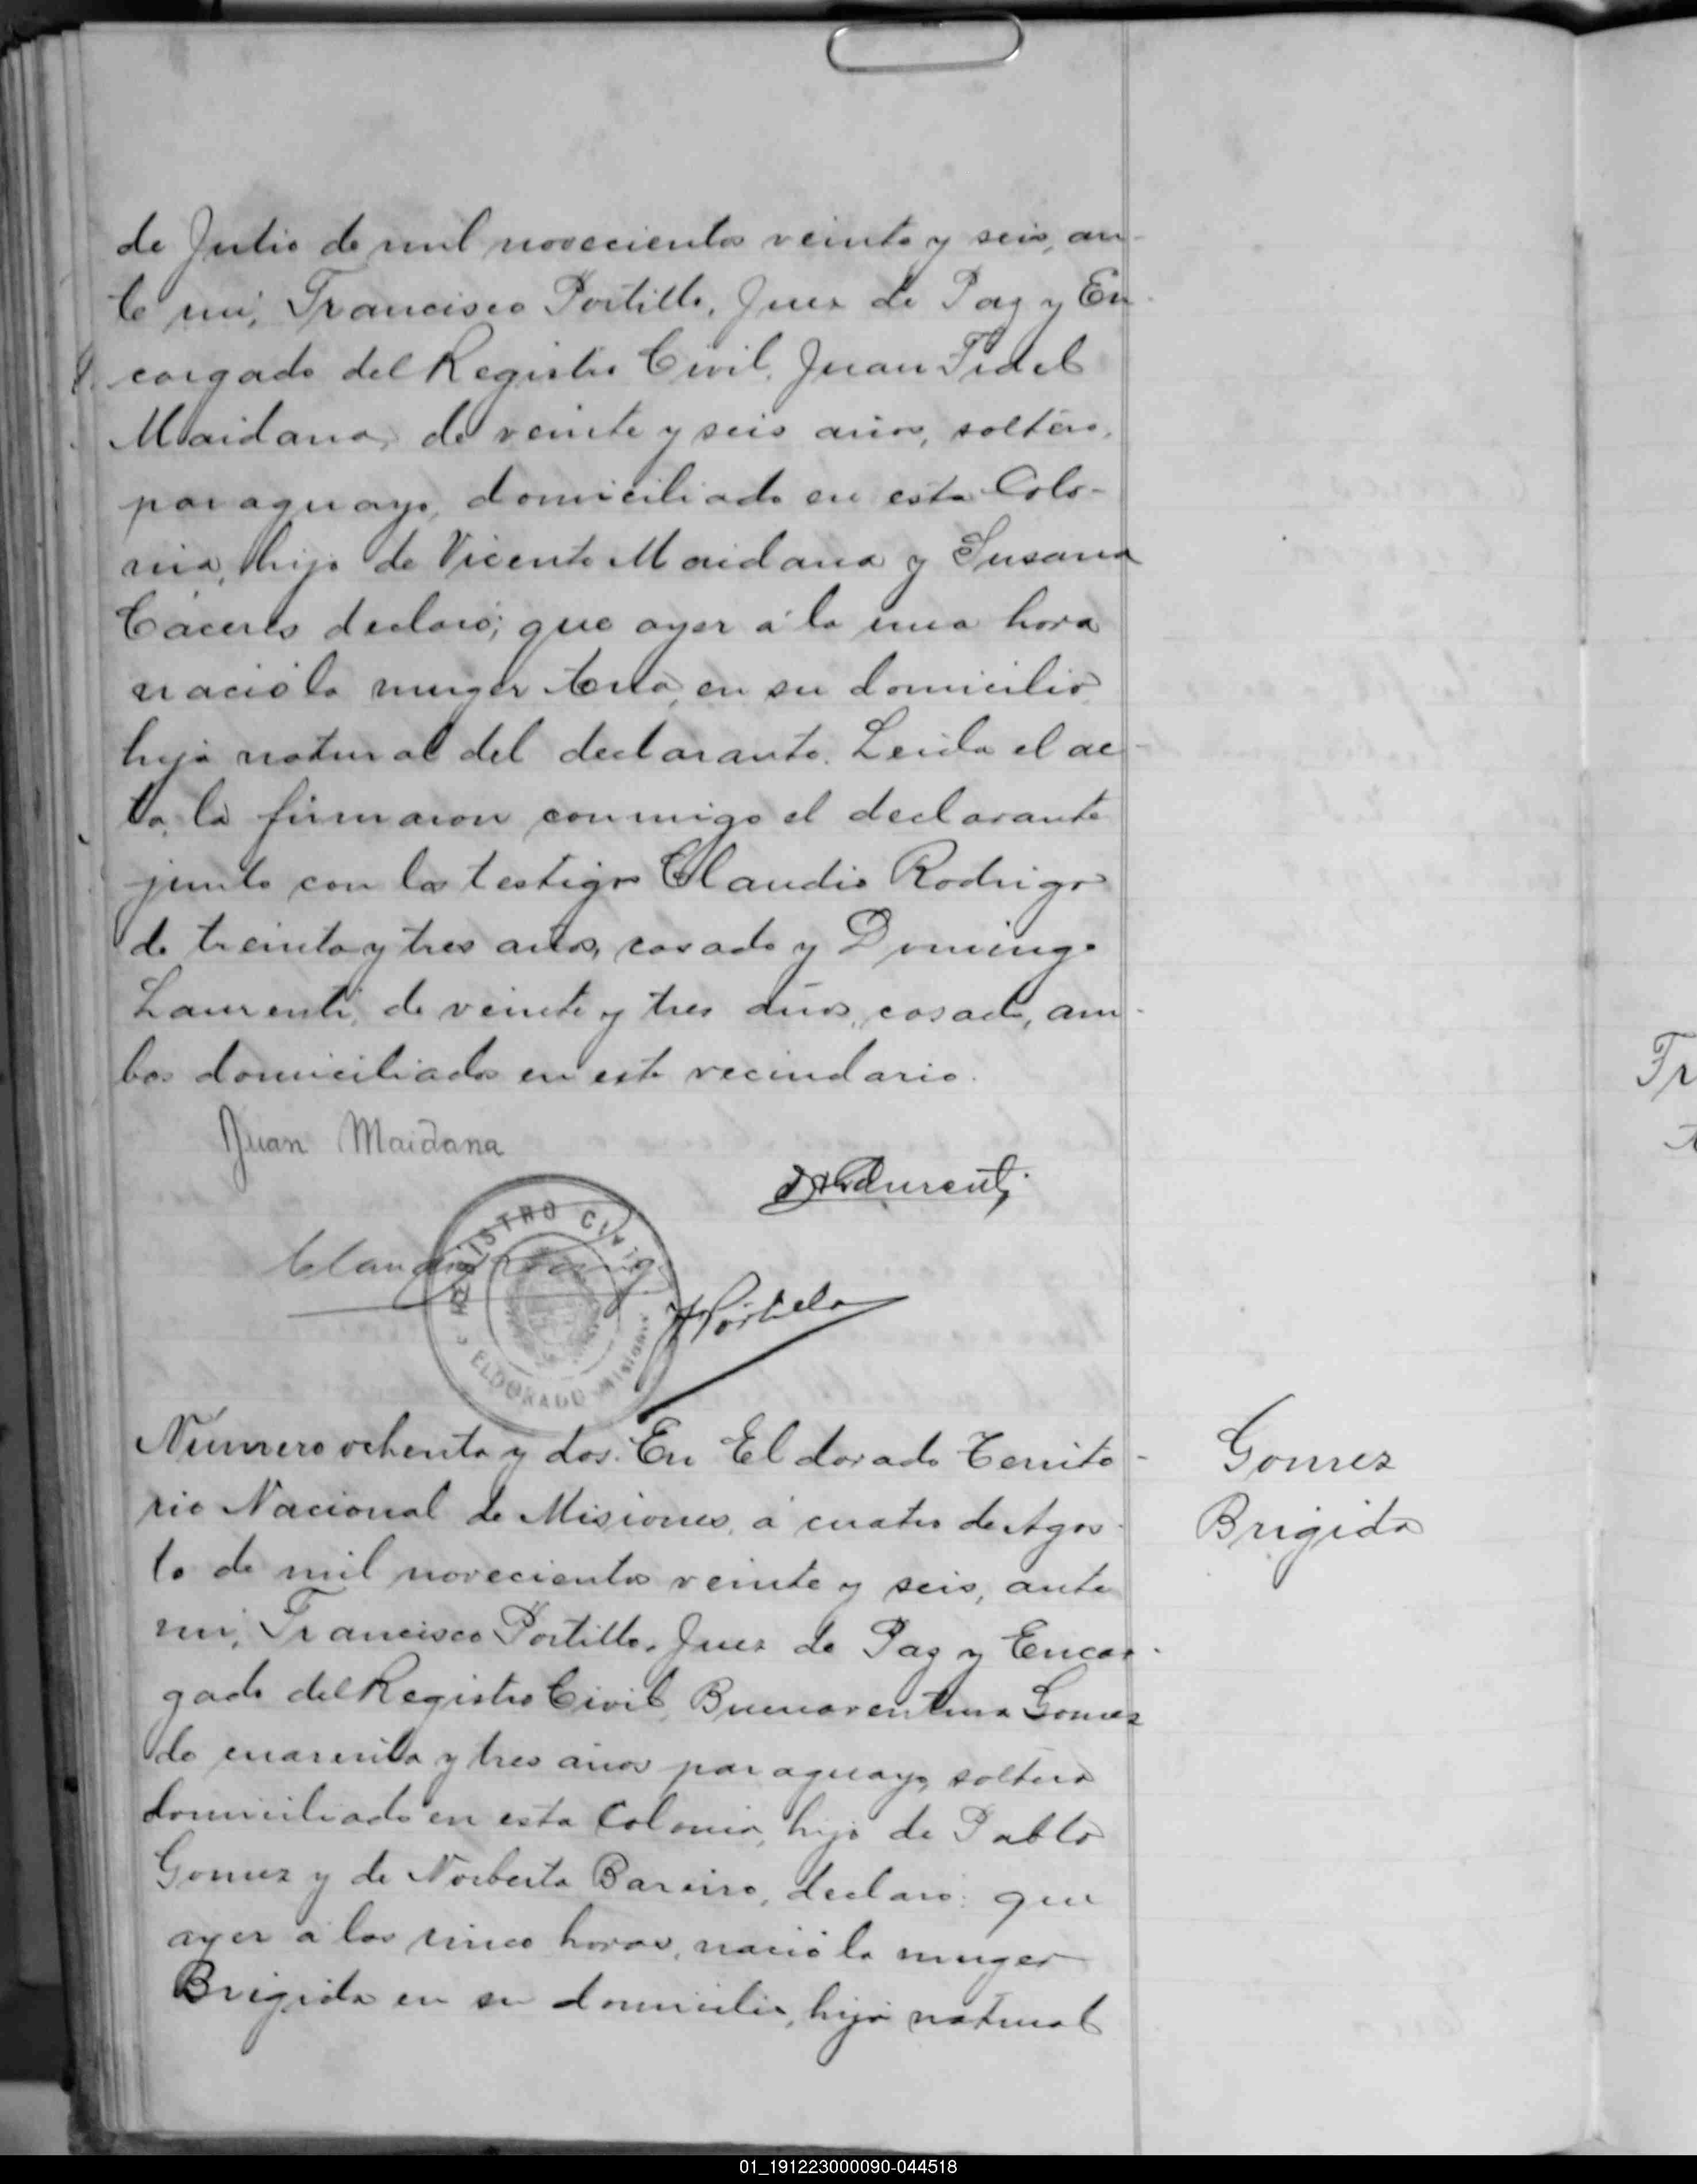 de Julio de mil novecientos veinte y seis, an-
te mi, Francisco Portillo, Juez de Paz y En-
cargado del Registro Civil, Juan Fidel
Maidana, de veinte y seis años, soltero,
paraguayo, domiciliado en esta Colo-
nia, hijo de Vicente Maidana y Susana
Cáceres declaró; que ayer á la una hora
nació la muger en su domicilio
hija natural del declarante. Leida el ac-
ta, la firmaron conmigo el declarante
junto con los testigos Claudio Rodrigo
de treinta y tres años, casado y Domingo
Laurenti, de veinte y tres años, casado, am-
bos domiciliados en este vecindario.
Juan Maidana
Laurenti
Claudio Rodrigo
REGISTRO CIVIL
FPortillo
ELDORADO Misiones
Número ochenta y dos. En Eldorado Territo-
rio Nacional de Misiones, á cuatro de Agos-
to de mil novecientos veinte y seis, ante
mi, Francisco Portillo, Juez de Paz y Encar-
gado del Registro Civil, Buenaventura Gomez
de cuarenta y tres años paraguayo, soltero
domiciliado en esta Colonia, hijo de Pablo
Gomez y de Norberta Bareiro, declaró: que
ayer á las cinco horas, nació la muger
Brigida en su domicilio, hija natural
Gomez
Brigida
Fr
01_191223000090-044518